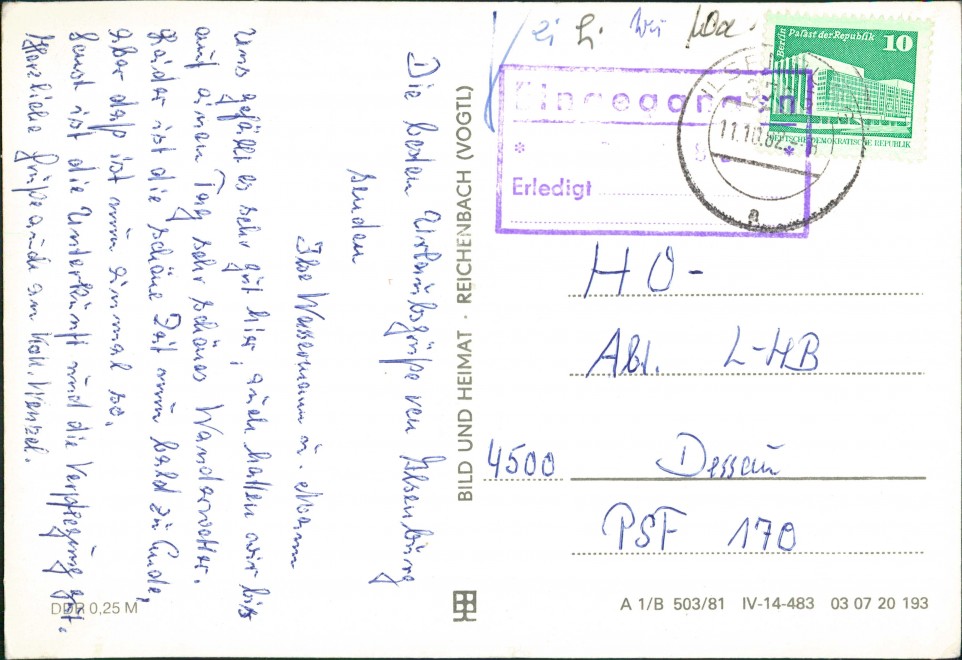 Die besten Urlaubsgrüße von Ilsenburg
senden
Ilse Wassermann u. Mann
Uns gefällt es sehr gut hier, auch hatten wir bis
auf einen Tag sehr schönes Wanderwetter.
Leider ist die schöne Zeit nun bald zu Ende,
Aber daß ist nun einmal so.
Sonst ist die Unterkunft und die Verpflegung gut.
Herzliche Grüße auch an Koll. Wenzel.
DDR 0,25 M
BILD UND HEIMAT · REICHENBACH (VOGTL)
Berlin Palast der Republik 10
DEUTSCHE DEMOKRATISCHE REPUBLIK
11.10.82
a
Eingegangen
Erledigt
HO-
Abt. L-HB
4500 Dessau
PSF 170
A 1/B 503/81 IV-14-483 03 07 20 193